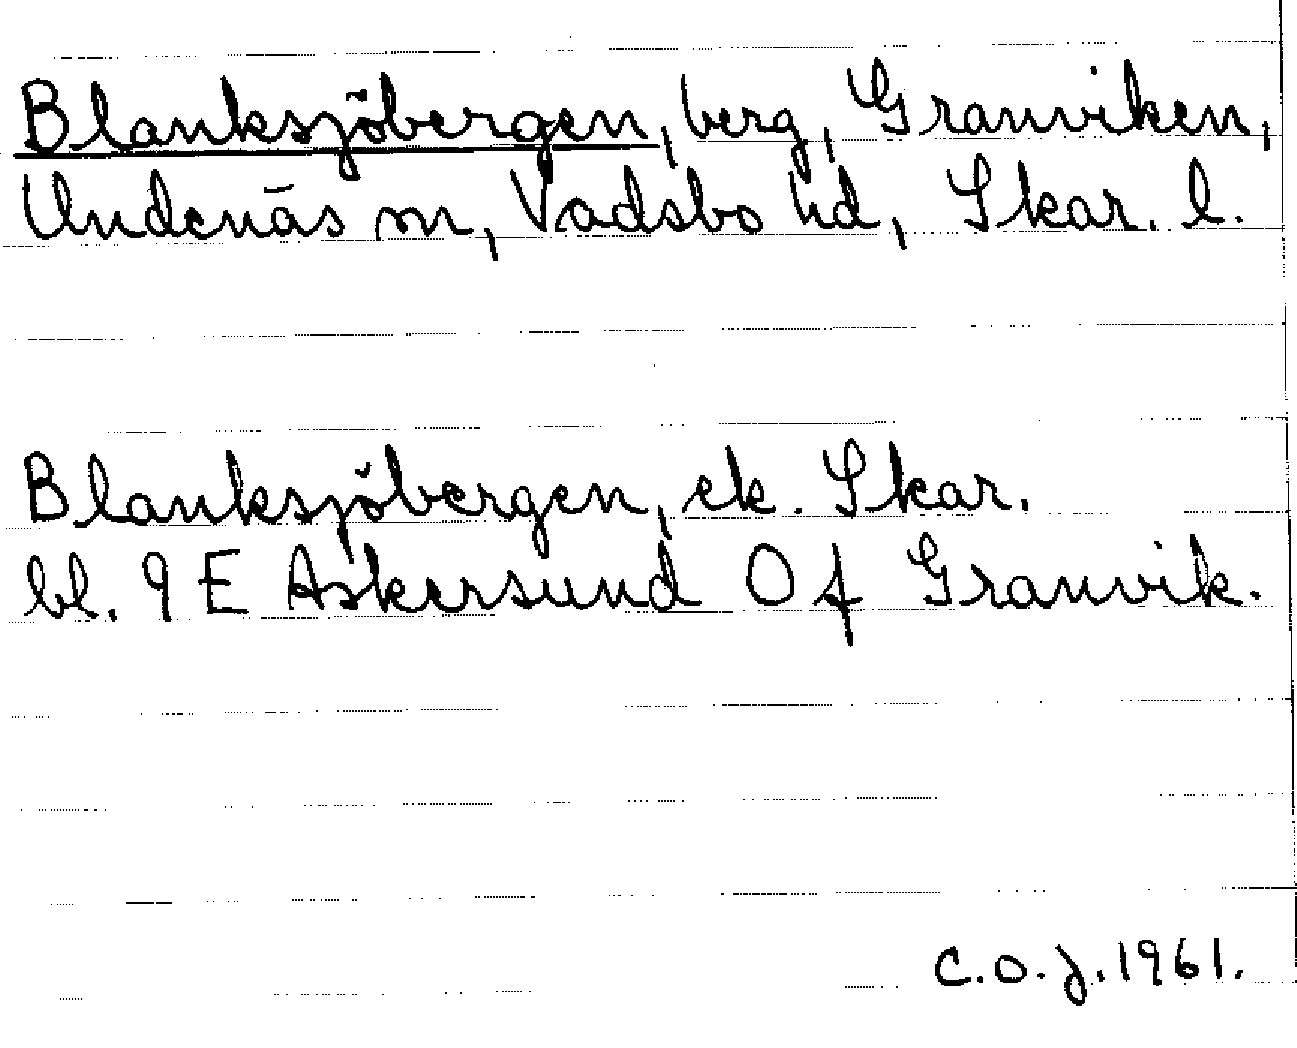 Blanksjöbergen, berg, Granviken,
Undenäs sn, Vadsbo hd, Skar. l.
Blanksjöbergen, ek. Skar.
bl. 9 E Askersund 0 f Granvik.
C.O.J. 1961.